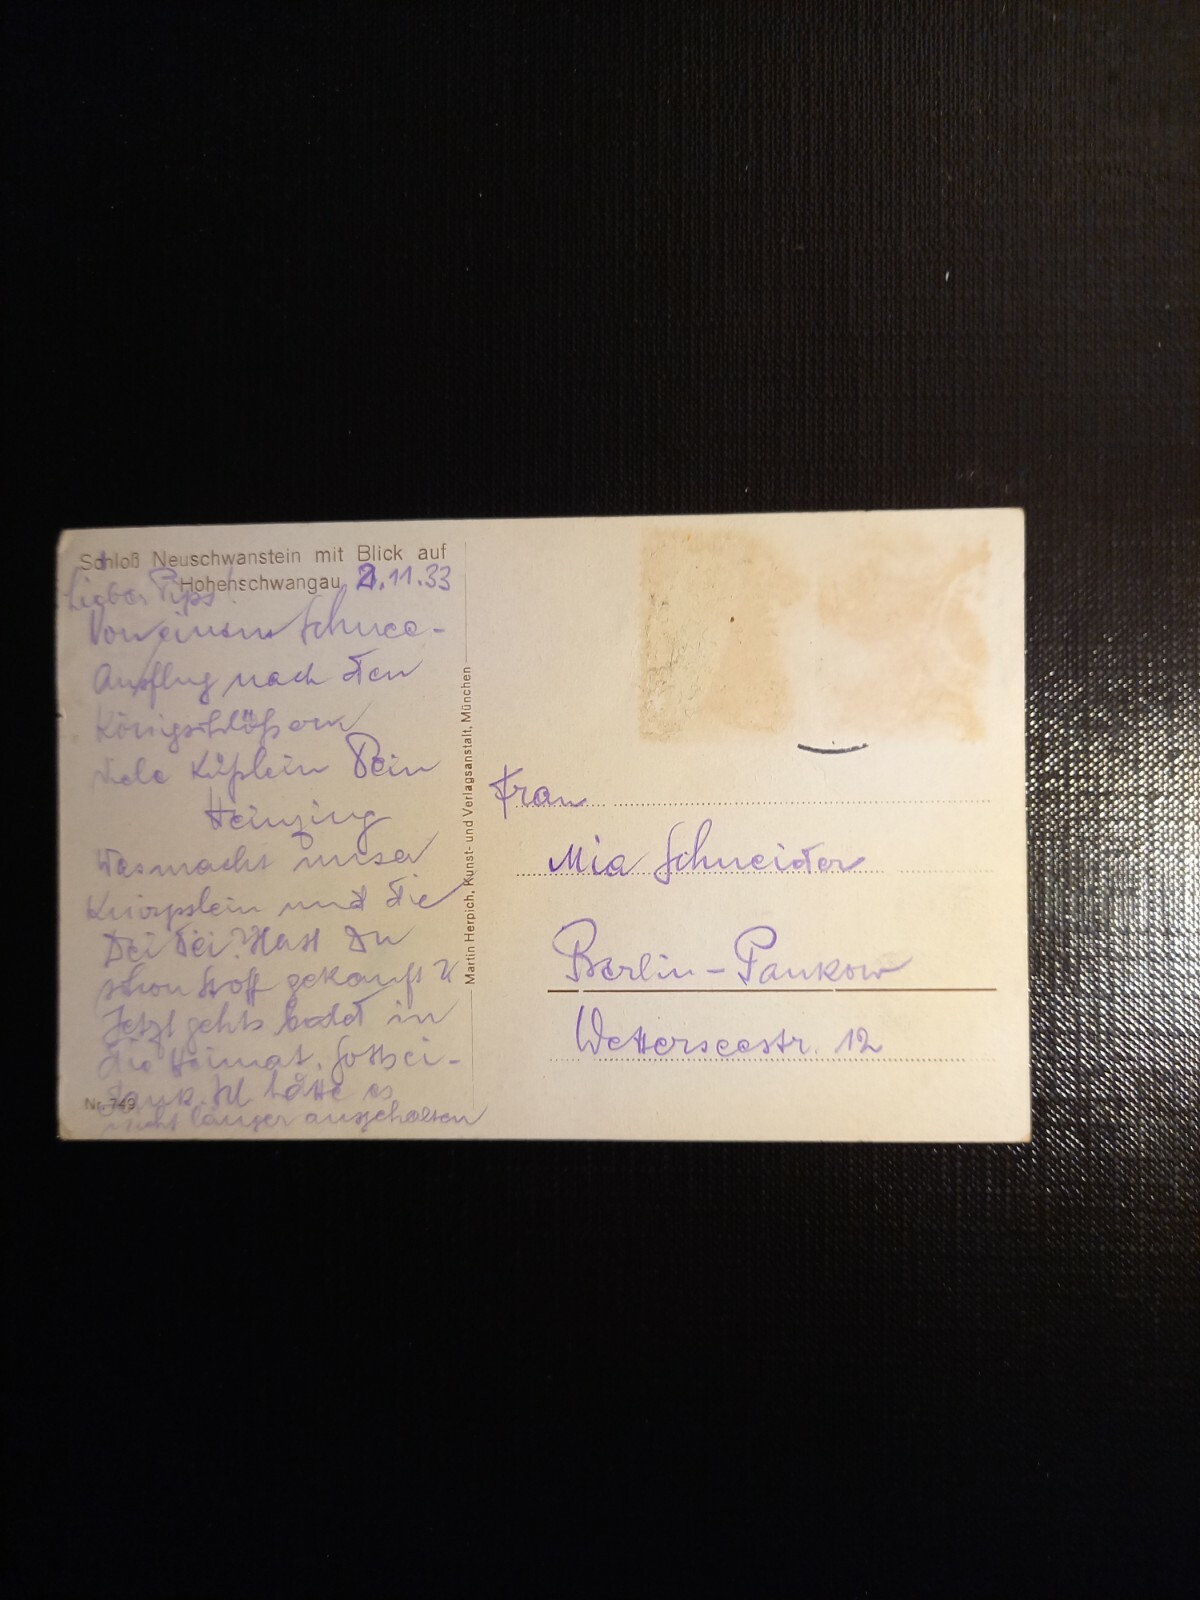 Schloß Neuschwanstein mit Blick auf
Hohenschwangau 2.11.33
Lieber Pips!
Von einem Schnee-
Ausflug nach den
Königschlößern
viele Küßlein Dein
Heinzing
Was macht unser
Knirpslein und die
Dei Dei? Hast Du
schon Stoff gekauft?
Jetzt gehts bald in
die Heimat. Gottsei-
dank. Ich hätte es
nicht länger ausgehalten
Nr. 743
Martin Herpich, Kunst- und Verlagsanstalt, München
Frau
Mia Schneider
Berlin-Pankow
Wetterseestr. 12